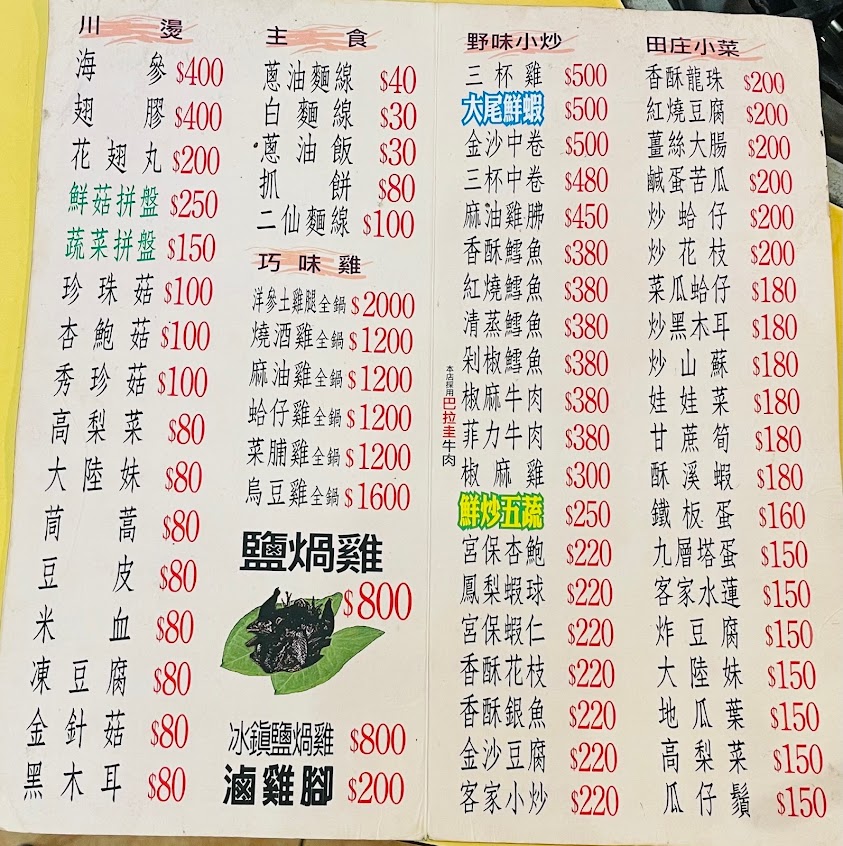 川燙
海參 $400
翅膠 $400
花翅丸 $200
鮮菇拼盤 $250
蔬菜拼盤 $150
珍珠菇 $100
杏鮑菇 $100
秀珍菇 $100
高梨菜 $80
大陸妹 $80
茼蒿 $80
豆皮 $80
米血 $80
凍豆腐 $80
金針菇 $80
黑木耳 $80
主食
蔥油麵線 $40
白麵線 $30
蔥油飯 $30
抓餅 $80
二仙麵線 $100
巧味雞
洋參土雞腿全鍋 $2000
燒酒雞全鍋 $1200
麻油雞全鍋 $1200
蛤仔雞全鍋 $1200
菜脯雞全鍋 $1200
烏豆雞全鍋 $1600
鹽焗雞
$800
冰鎮鹽焗雞 $800
滷雞腳 $200
野味小炒
三杯雞 $500
大尾鮮蝦 $500
金沙中卷 $500
三杯中卷 $480
麻油雞胇 $450
香酥鱈魚 $380
紅燒鱈魚 $380
清蒸鱈魚 $380
剁椒鱈魚 $380
椒麻牛肉 $380
菲力牛肉 $380
本店採用巴拉圭牛肉
椒麻雞 $300
鮮炒五蔬 $250
宮保杏鮑 $220
鳳梨蝦球 $220
宮保蝦仁 $220
香酥花枝 $220
香酥銀魚 $220
金沙豆腐 $220
客家小炒 $220
田庄小菜
香酥龍珠 $200
紅燒豆腐 $200
薑絲大腸 $200
鹹蛋苦瓜 $200
炒蛤仔 $200
炒花枝 $200
菜瓜蛤仔 $180
炒黑木耳 $180
炒山蘇 $180
娃娃菜 $180
甘蔗筍 $180
酥溪蝦 $180
鐵板蛋 $160
九層塔蛋 $150
客家水蓮 $150
炸豆腐 $150
大陸妹 $150
地瓜葉 $150
高梨菜 $150
瓜仔鬚 $150